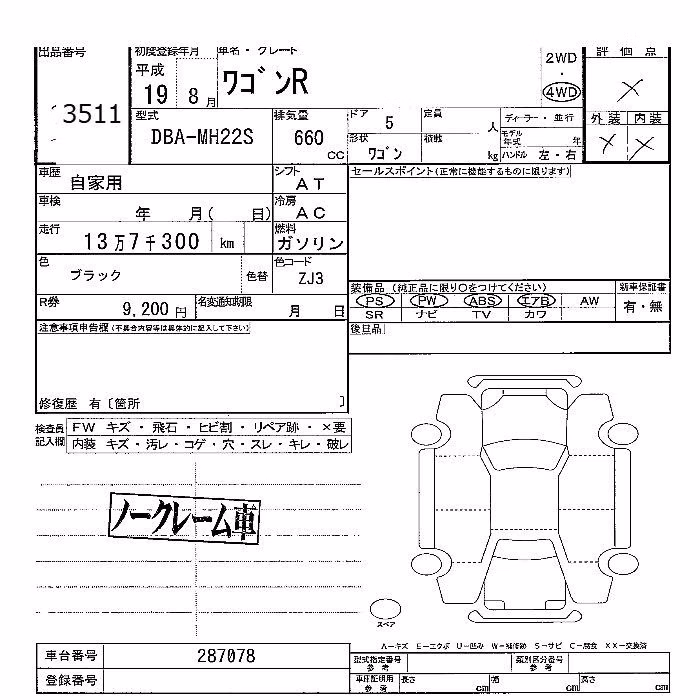 出品番号
3511
初度登録年月
平成
19 8 月
車名・グレード
ワゴンR
2WD
・
4WD
評価点
×
外装 内装
× ×
型式
DBA-MH22S
排気量
660
CC
ドア
5
形状
ワゴン
定員
人
積載
kg
ディーラー・並行
モデル年式 年
ハンドル 左・右
車歴
自家用
シフト
AT
車検
年 月( 日)
冷房
AC
走行
13万7千300 km
燃料
ガソリン
色
ブラック
色替
色コード
ZJ3
R券
9,200円
名変通知期限
月 日
セールスポイント(正常に機能するものに限ります)
装備品 (純正品に限り○をつけてください)
新車保証書
PS PW ABS エアB AW
有・無
SR ナビ TV カワ
後日品
注意事項申告欄(不具合内容等は具体的に記入して下さい)
修復歴 有〔箇所 〕
検査員記入欄
FW キズ・飛石・ヒビ割・リペア跡・×要
内装 キズ・汚レ・コゲ・穴・スレ・キレ・破レ
ノークレーム車
スペア
A−キズ E−エクボ U−凹み W−補修跡 S−サビ C−腐食 XX−交換済
車台番号
287078
登録番号
型式指定番号
参考
類別区分番号
参考
車庫証明用
参考
長さ cm
幅 cm
高さ cm